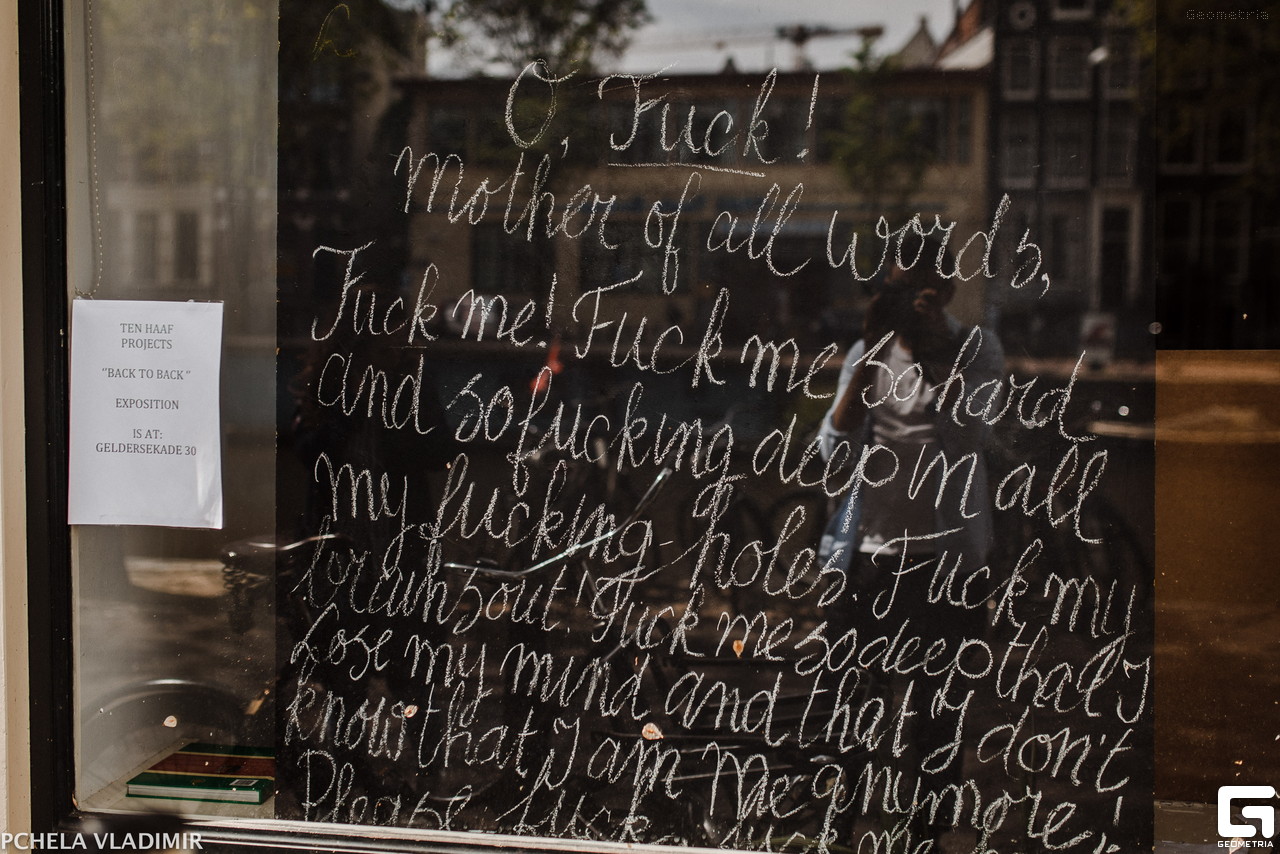 Geometria
O, Fuck!
Mother of all words,
Fuck me! Fuck me so hard
and so fucking deep in all
my fucking-holes. Fuck my
brains out! Fuck me so deep that I
lose my mind and that I don't
know that I am me anymore!
Please fuck fuck me
TEN HAAF
PROJECTS
"BACK TO BACK"
EXPOSITION
IS AT:
GELDERSEKADE 30
PCHELA VLADIMIR
GEOMETRIA